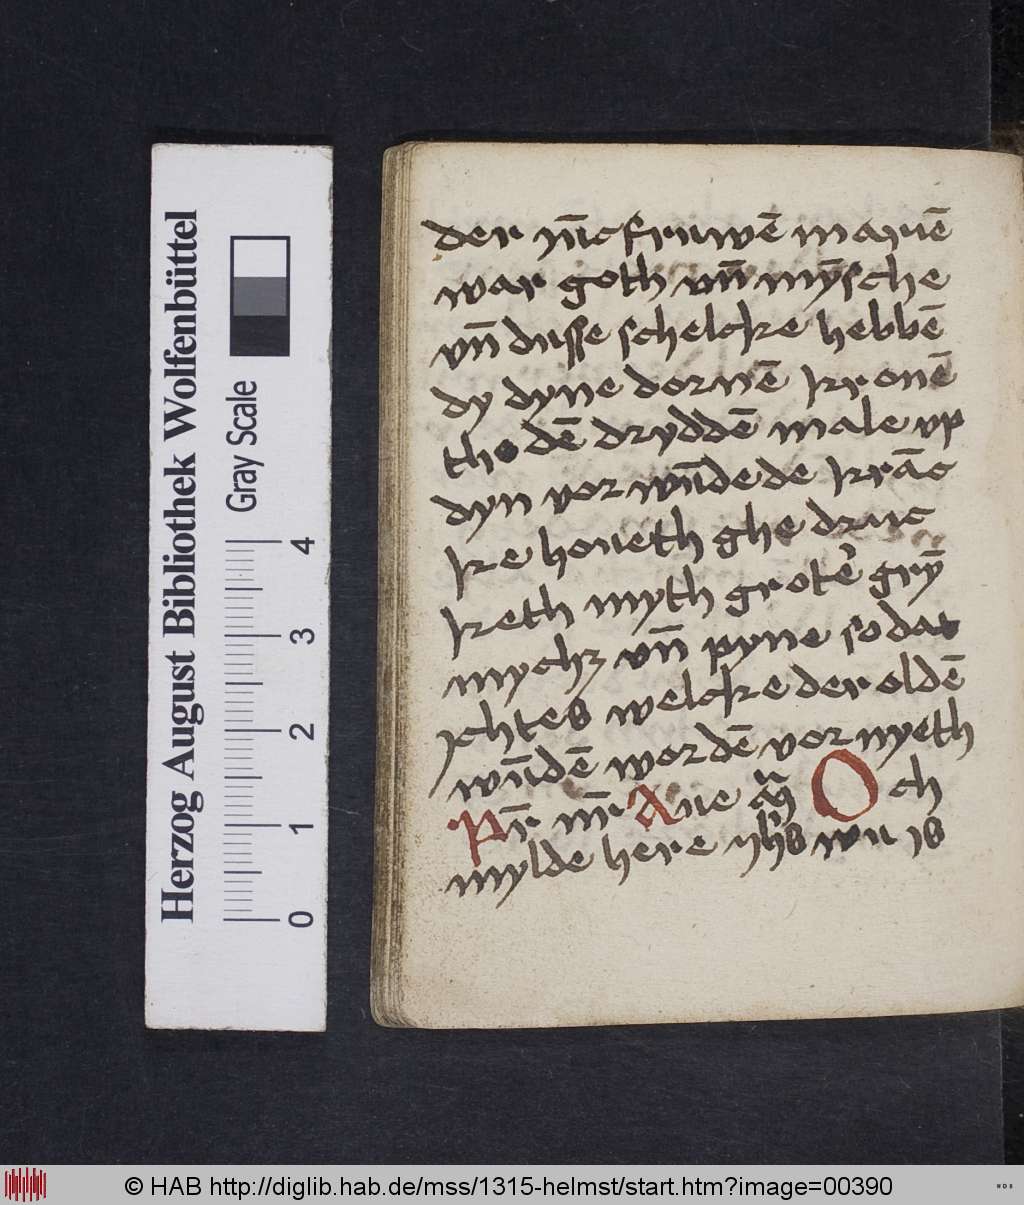 Herzog August Bibliothek Wolfenbüttel
Gray Scale
0 1 2 3 4
der yūcfruwē marıē
war goth vn̄ mȳsche
vn̄ dusse schelcke hebbē
dy dyne dornē kronē
tho dē drydden̄ male vp
dyn vorwūdede krāc
ke houeth ghe druc
keth myth grotē grȳ
mychz vn̄ pyne so dat
ychtes welcke der oldē
wūdē wordē vornyeth
Pr̄ nr̄ Aue O och
mylde here ıh̄s wu is
© HAB http://diglib.hab.de/mss/1315-helmst/start.htm?image=00390